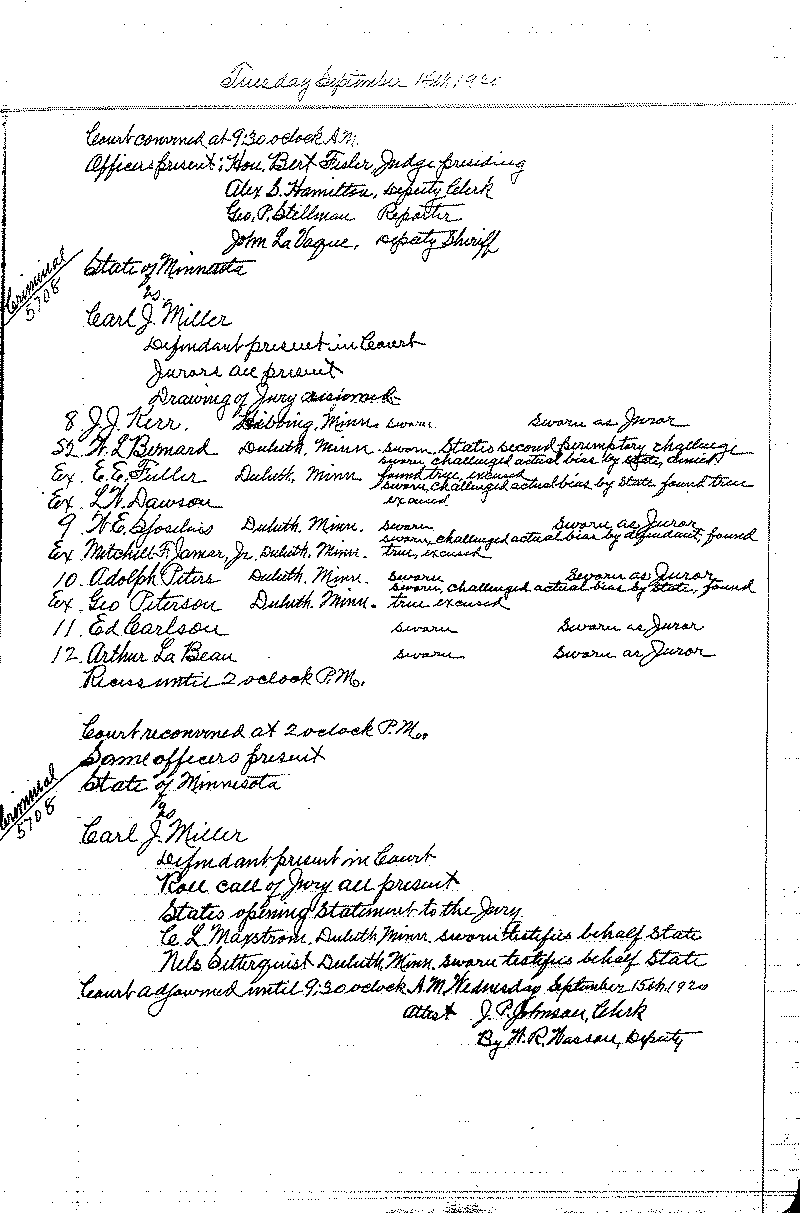 Tuesday September 14th, 1920
Court convened at 9:30 oclock A.M.
Officers present; Hon. Bert Fesler, Judge presiding
Alex S. Hamilton, Deputy Clerk
Geo. P. Stillman Reporter
John La Vaque, Deputy Sheriff
Criminal
5708
State of Minnesota
vs
Carl J. Miller
Defendant present in Court
Jurors all present
Drawing of Jury resumed
8 J.J. Kerr. Hibbing, Minn. sworn Sworn as Juror
S2 Bernard Duluth, Minn. sworn, States second peremptory challenge
Ex. E.E. Fuller Duluth, Minn sworn, challenged actual bias by State, denied
found true, excused
Ex. L.W. Dawson sworn, challenged actual bias by State found true
excused
9 Duluth. Minn. sworn Sworn as Juror
Ex Mitchell F. Jamar, Jr. Duluth, Minn. sworn, challenged actual bias by defendant, found
true, excused
10. Adolph Peters Duluth. Minn. sworn Sworn as Juror
Ex. Geo Peterson Duluth. Minn. sworn, challenged actual bias by State, found
true excused
11. Ed Carlson sworn Sworn as Juror
12. Arthur La Beau sworn Sworn as Juror
Recess until 2 oclock P.M.
Court reconvened at 2 oclock P.M.
Same officers present
Criminal
5708
State of Minnesota
vs
Carl J. Miller
Defendant present in Court
Roll call of Jury all present
States opening statement to the Jury
C. L. Maxstrom, Duluth Minn. sworn testifies behalf State
Nels Duluth, Minn. sworn testifies behalf State
Court adjourned until 9:30 oclock A.M. Wednesday September 15th, 1920
Attest J. P. Johnson, Clerk
By H. R. Wasson, Deputy